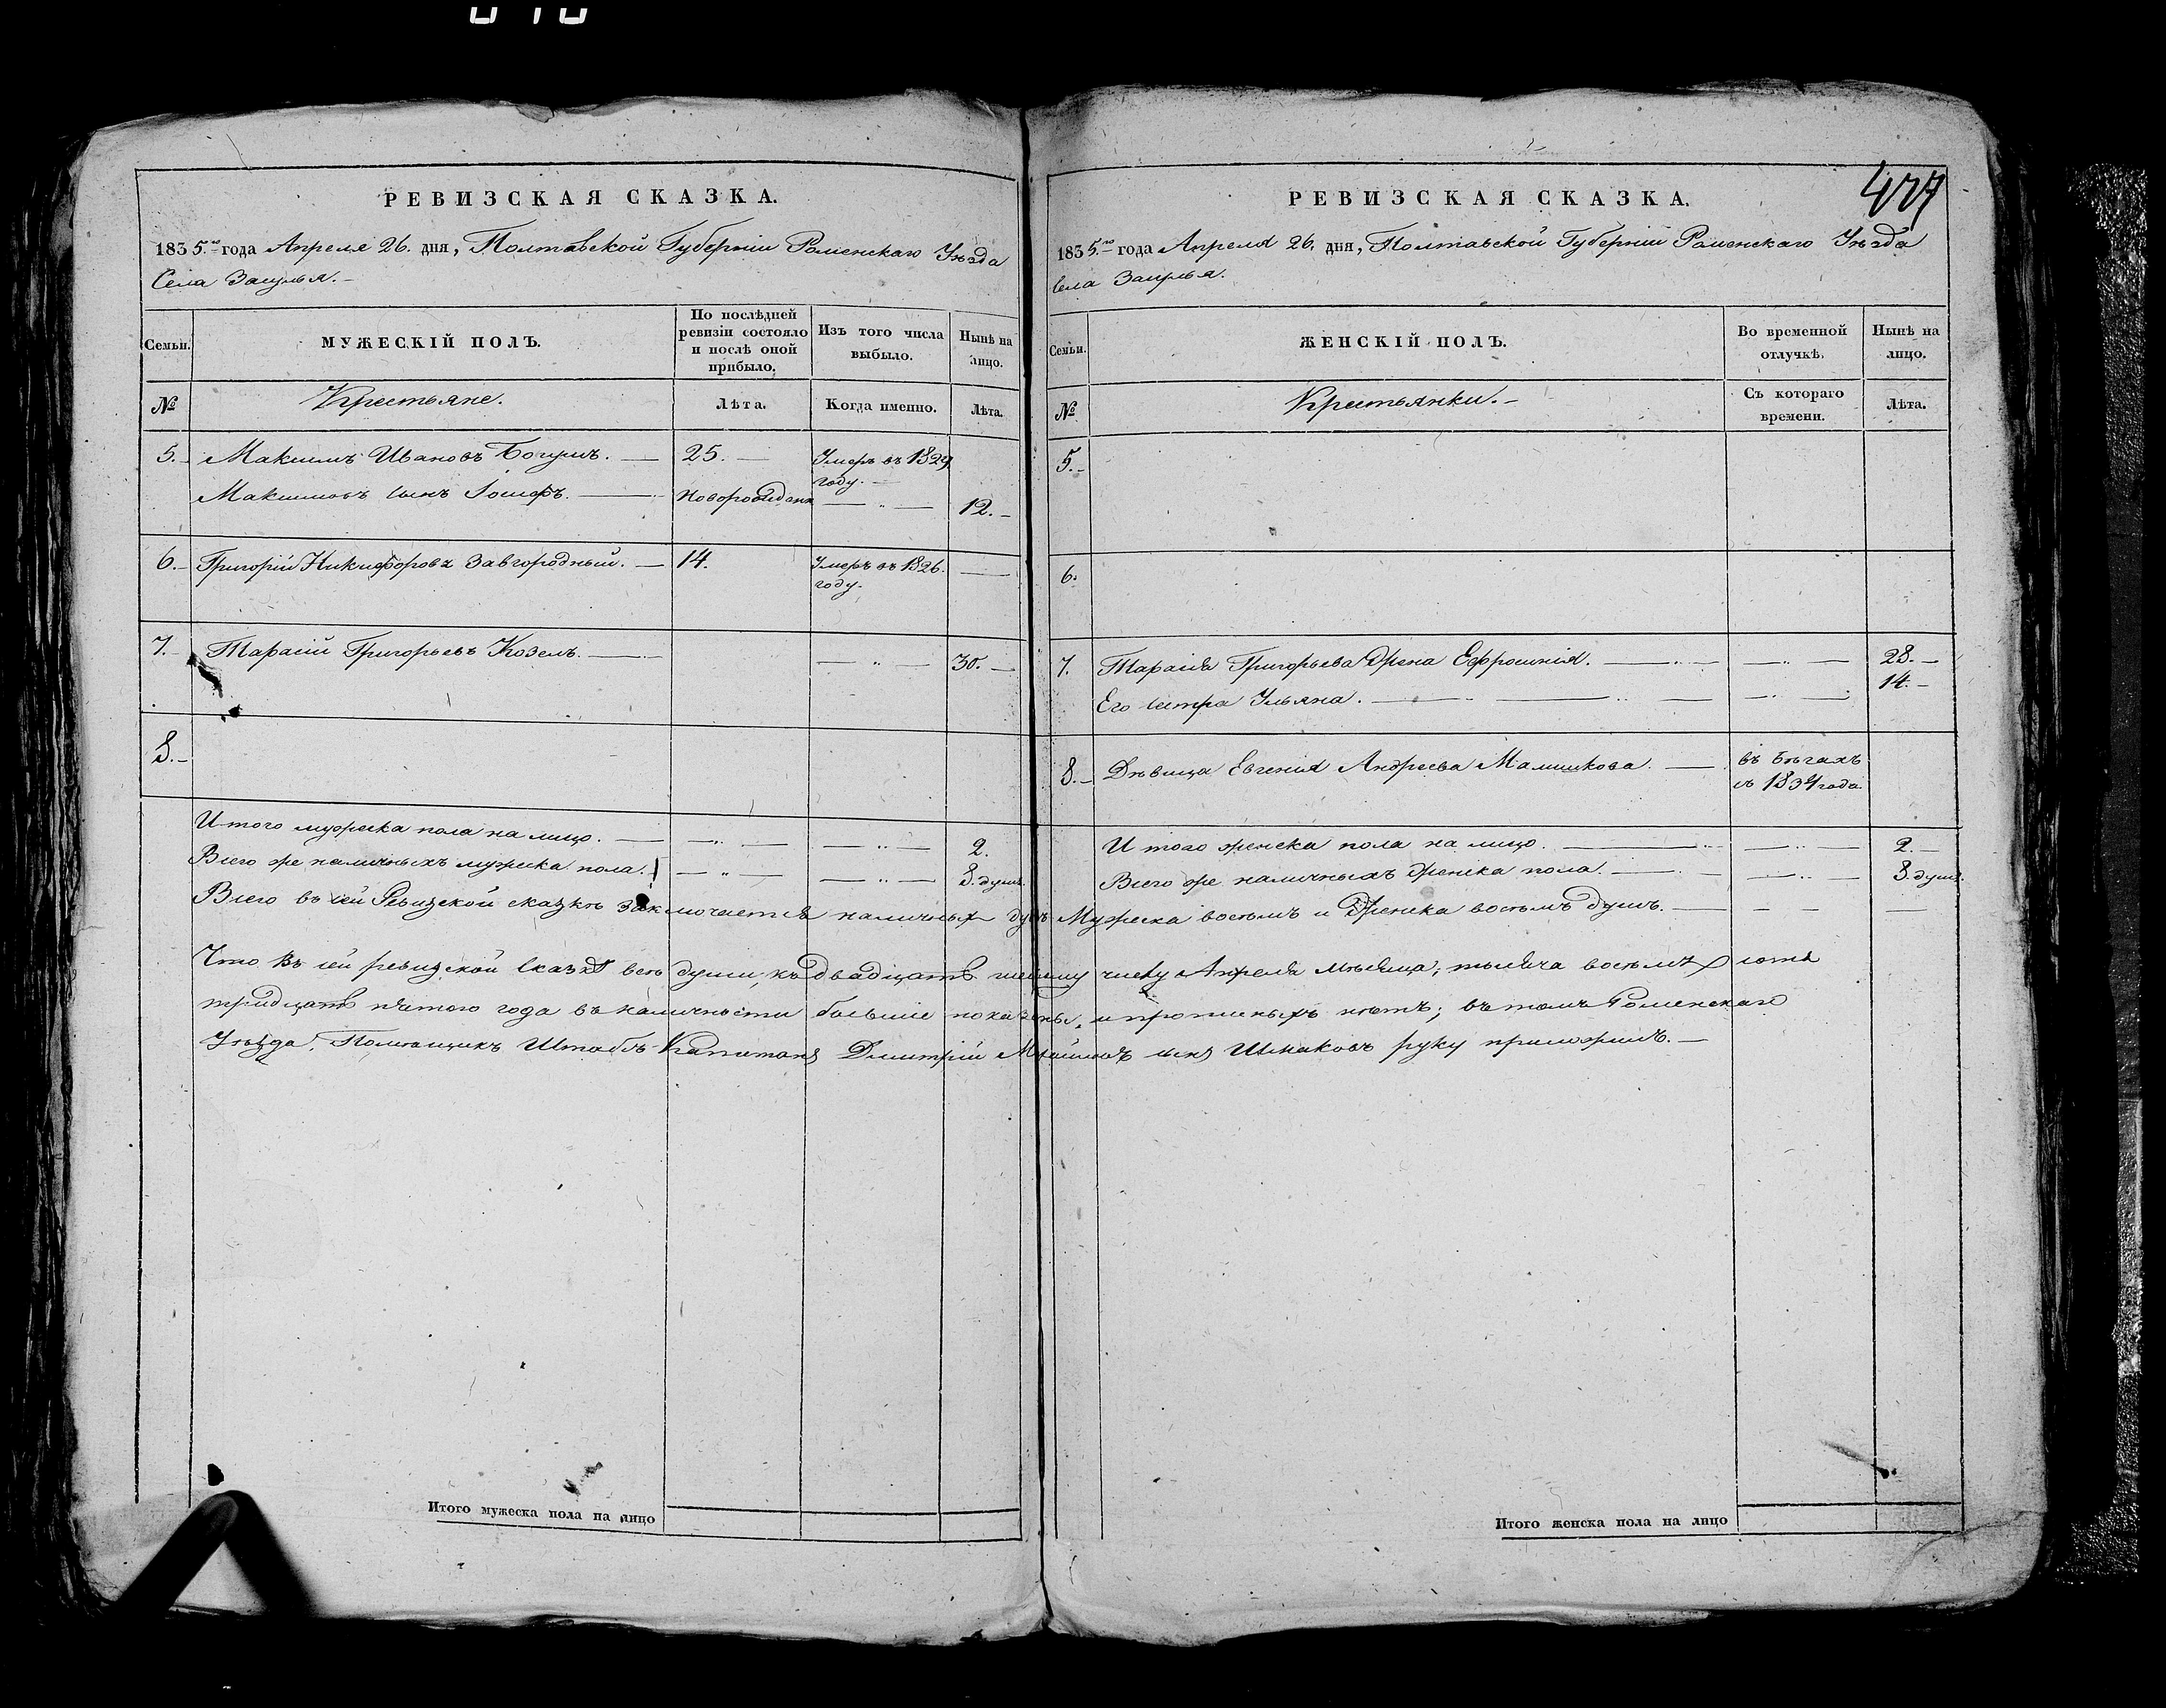 РЕВИЗСКАЯ СКАЗКА.
1835го года Апреля 26. дня, Полтавской Губерніи Роменскаго Уѣзда
Села Засулья.
Семьи.
МУЖЕСКІЙ ПОЛЪ.
По послѣдней
ревизіи состояло
и послѣ оной
прибыло.
Изъ того числа
выбыло.
Нынѣ на
лицо.
№
Крестьяне.
Лѣта.
Когда именно.
Лѣта.
5. Максимъ Ивановъ Богушъ. 25. Умеръ въ 1829
году.
Максимовъ сынъ Іосифъ. новорожденъ 12.
6. Григорій Никифоровъ Завгородный. 14. Умеръ въ 1826.
году.
7. Тарасій Григорьевъ Козелъ. 30.
8.
Итого мужеска пола на лицо. 2.
Всего же наличныхъ мужеска пола. 8. душъ.
РЕВИЗСКАЯ СКАЗКА.
1835го года Апреля 26. дня, Полтавской Губерніи Роменскаго Уѣзда
Села Засулья.
Семьи.
ЖЕНСКІЙ ПОЛЪ.
Во временной
отлучкѣ.
Нынѣ на
лицо.
№
Крестьянки.
Съ котораго
времени.
Лѣта.
5.
6.
7. Тарасія Григорьева жена Ефросинія. 28.
Его сестра Ульяна. 14.
8. Дѣвица Евгенія Андреева въ бѣгахъ
съ 1834 года.
Итого женска пола на лицо. 2.
Всего же наличныхъ женска пола. 8. душъ.
Всего въ сей Ревизской сказкѣ заключается наличныхъ душъ Мужеска восемь и Женска восемь душъ.
Что въ сей ревизской сказкѣ всѣ души, къ двадцать шестому числу Апреля мѣсяца, тысяча восемь сотъ
тридцать пятого года въ наличности бывшіе показаны, и прописныхъ нѣтъ; въ томъ Роменскаго
Уѣзда, Помѣщикъ Штабсъ-Капитанъ Дмитрій сынъ руку приложилъ.
Итого мужеска пола на лицо
Итого женска пола на лицо